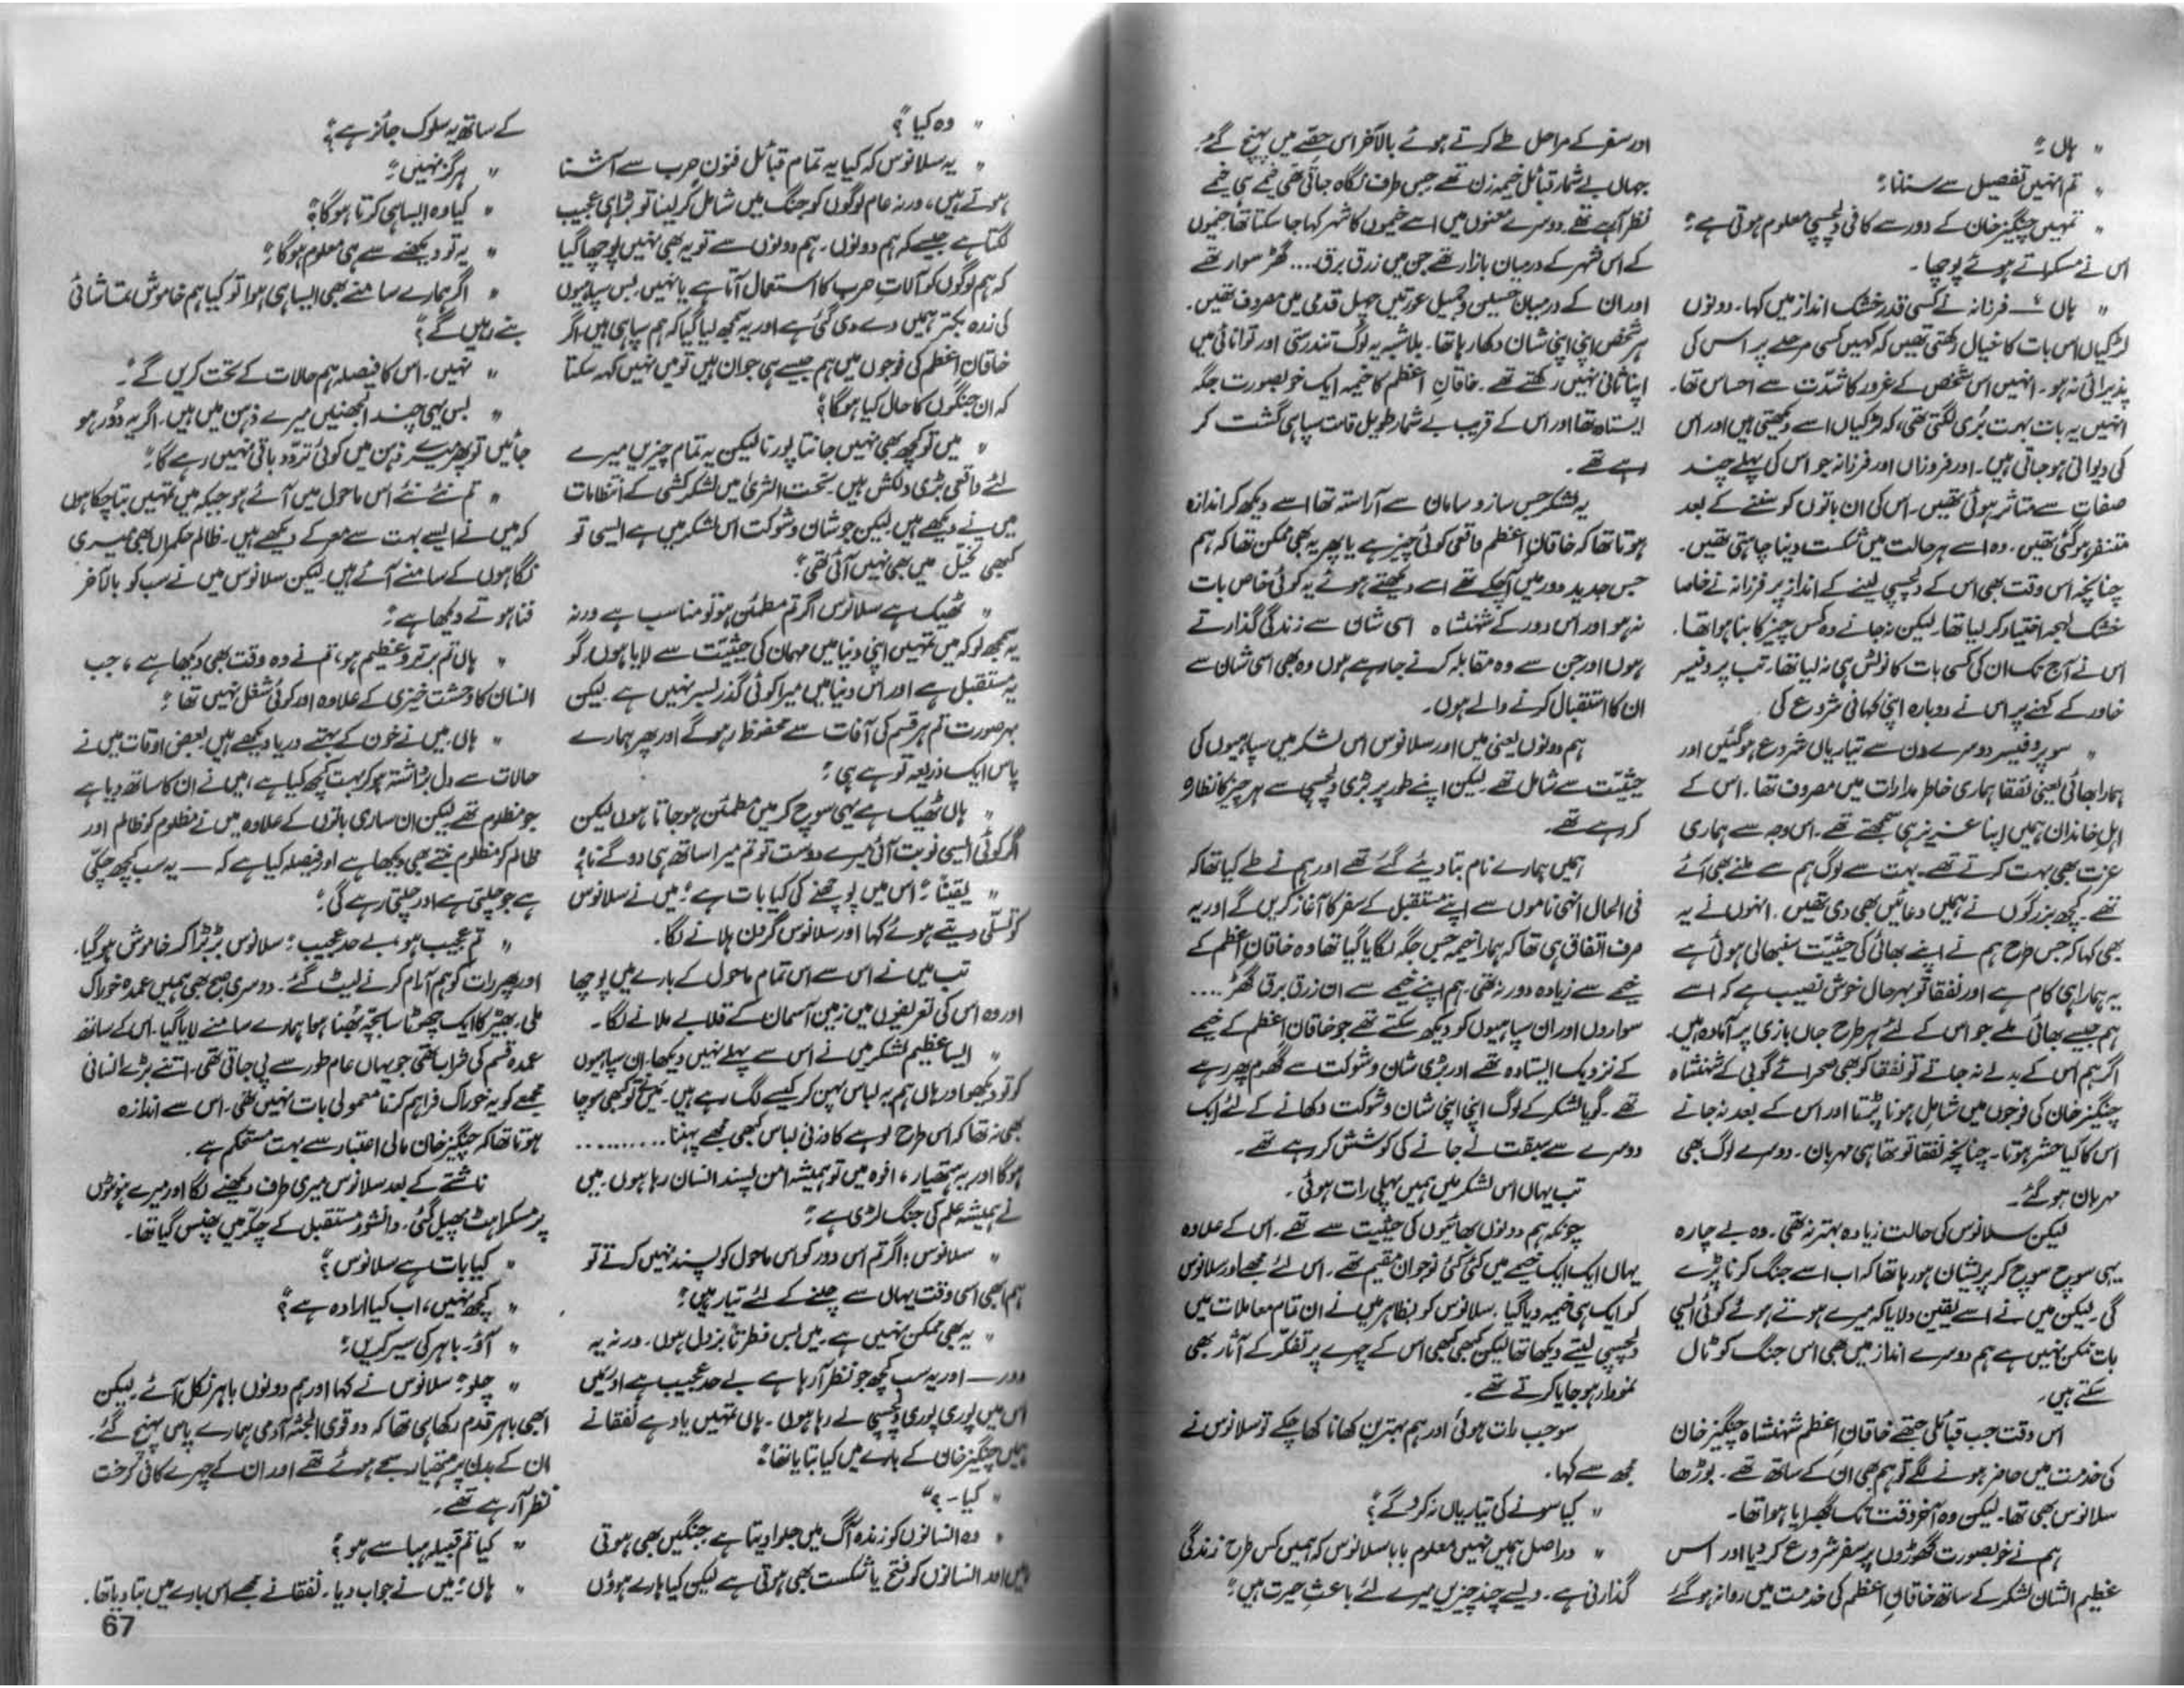 " ہاں ؟
" تم انہیں تفصیل سے سنانا ؟
" تمہیں چنگیز خان کے دور سے کافی دلچسپی معلوم ہوتی ہے ؟
اس نے مسکراتے ہوئے پوچھا۔
" ہاں " ــــ فرزانہ نے کسی قدر خشک انداز میں کہا۔ دونوں
لڑکیاں اس بات کا خیال رکھتی تھیں کہ کہیں کسی مرحلے پر اس کی
پذیرائی نہ ہو۔ انہیں اس شخص کے غرور کا شدّت سے احساس تھا۔
انہیں یہ بات بہت بُری لگتی تھی، کہ لڑکیاں اسے دیکھتی ہیں اور اس
کی دیوانی ہو جاتی ہیں۔ اور فروزاں اور فرزانہ جو اس کی پہلے چند
صفات سے متاثر ہوئی تھیں۔ اس کی ان باتوں کو سننے کے بعد
متنفر ہو گئی تھیں۔ وہ اسے ہر حالت میں شکست دینا چاہتی تھیں۔
چنانچہ اس وقت بھی اس کے دلچسپی لینے کے انداز پر فرزانہ نے خاصا
خشک لہجہ اختیار کر لیا تھا۔ لیکن نہ جانے وہ کس چیز کا بنا ہوا تھا۔
اس نے آج تک ان کی کسی بات کا نوٹس ہی نہ لیا تھا۔ تب پروفیسر
خاور کے کہنے پر اس نے دوبارہ اپنی کہانی شروع کی۔
" سو پروفیسر دوسرے دن سے تیاریاں شروع ہو گئیں اور
ہمارا بھائی یعنی نفقا ہماری خاطر مدارات میں مصروف تھا۔ اس کے
اہلِ خاندان ہمیں اپنا عزیز ہی سمجھتے تھے۔ اس وجہ سے ہماری
عزت بھی بہت کرتے تھے۔ بہت سے لوگ ہم سے ملنے بھی آئے
تھے۔ کچھ بزرگوں نے ہمیں دعائیں بھی دی تھیں۔ انہوں نے یہ
بھی کہا کہ جس طرح ہم نے اپنے بھائی کی حیثیت سنبھالی ہوئی ہے
یہ ہمارا ہی کام ہے اور نفقا تو بہر حال خوش نصیب ہے کہ اسے
ہم جیسے بھائی ملے جو اس کے لئے ہر طرح جاں بازی پر آمادہ ہیں۔
اگر ہم اس کے بدلے نہ جاتے تو نفقا کو بھی صحرائے گوبی کے شہنشاہ
چنگیز خان کی فوجوں میں شامل ہونا پڑتا اور اس کے بعد نہ جانے
اس کا کیا حشر ہوتا۔ چنانچہ نفقا تو تھا ہی مہربان۔ دوسرے لوگ بھی
مہربان ہو گئے۔
لیکن سلانوس کی حالت زیادہ بہتر نہ تھی۔ وہ بے چارہ
یہی سوچ سوچ کر پریشان ہو رہا تھا کہ اب اسے جنگ کرنا پڑے
گی۔ لیکن میں نے اسے یقین دلایا کہ میرے ہوتے ہوئے کوئی ایسی
بات ممکن نہیں ہے ہم دوسرے انداز میں بھی اس جنگ کو ٹال
سکتے ہیں۔
اس وقت جب قبائلی جتھے خاقانِ اعظم شہنشاہ چنگیز خان
کی خدمت میں حاضر ہونے لگے تو ہم بھی ان کے ساتھ تھے۔ بوڑھا
سلانوس بھی تھا۔ لیکن وہ آخر وقت تک گھبرایا ہوا تھا۔
ہم نے خوبصورت گھوڑوں پر سفر شروع کر دیا اور اس
عظیم الشان لشکر کے ساتھ خاقانِ اعظم کی خدمت میں روانہ ہو گئے
اور سفر کے مراحل طے کرتے ہوئے بالآخر اس حصّے میں پہنچ گئے۔
جہاں بے شمار قبائل خیمہ زن تھے جس طرف نگاہ جاتی تھی خیمے ہی خیمے
نظر آ رہے تھے۔ دوسرے معنوں میں اسے خیموں کا شہر کہا جا سکتا تھا۔ خیموں
کے اس شہر کے درمیان بازار تھے جن میں زرق برق .... گھڑ سوار تھے
اور ان کے درمیان حسین و جمیل عورتیں چہل قدمی میں مصروف تھیں۔
ہر شخص اپنی اپنی شان دکھا رہا تھا۔ بلاشبہ یہ لوگ تندرستی اور توانائی میں
اپنا ثانی نہیں رکھتے تھے۔ خاقانِ اعظم کا خیمہ ایک خوبصورت جگہ
ایستادہ تھا اور اس کے قریب بے شمار طویل قامت سپاہی گشت کر
رہے تھے۔
یہ لشکر جس ساز و سامان سے آراستہ تھا اسے دیکھ کر اندازہ
ہوتا تھا کہ خاقانِ اعظم واقعی کوئی چیز ہے یا پھر یہ بھی ممکن تھا کہ ہم
جس جدید دور میں آ چکے تھے اسے دیکھتے ہوئے یہ کوئی خاص بات
نہ ہو اور اس دور کے شہنشاہ اسی شان سے زندگی گذارتے
ہوں اور جن سے وہ مقابلہ کرنے جا رہے ہوں وہ بھی اسی شان سے
ان کا استقبال کرنے والے ہوں۔
ہم دونوں یعنی میں اور سلانوس اس لشکر میں سپاہیوں کی
حیثیّت سے شامل تھے۔ لیکن اپنے طور پر بڑی دلچسپی سے ہر چیز کا نظارہ
کر رہے تھے۔
ہمیں ہمارے نام بتا دیئے گئے تھے اور ہم نے طے کیا تھا کہ
فی الحال انہی ناموں سے اپنے مستقبل کے سفر کا آغاز کریں گے اور یہ
صرف اتفاق ہی تھا کہ ہمارا خیمہ جس جگہ لگایا گیا تھا وہ خاقانِ اعظم کے
خیمے سے زیادہ دور نہ تھی۔ ہم اپنے خیمے سے ان زرق برق گھڑ ....
سواروں اور ان سپاہیوں کو دیکھ سکتے تھے جو خاقانِ اعظم کے خیمے
کے نزدیک ایستادہ تھے اور بڑی شان و شوکت سے گھوم پھر رہے
تھے۔ گویا لشکر کے لوگ اپنی اپنی شان و شوکت دکھانے کے لئے ایک
دوسرے سے سبقت لے جانے کی کوشش کر رہے تھے۔
تب یہاں اس لشکر میں ہمیں پہلی رات ہوئی۔
چونکہ ہم دونوں بھائیوں کی حیثیت سے تھے۔ اس کے علاوہ
یہاں ایک ایک خیمے میں کئی کئی نوجوان مقیم تھے۔ اس لئے مجھے اور سلانوس
کو ایک ہی خیمہ دیا گیا۔ سلانوس کو بظاہر میں نے ان تمام معاملات میں
دلچسپی لیتے دیکھا تھا لیکن کبھی کبھی اس کے چہرے پر تفکّر کے آثار بھی
نمودار ہو جایا کرتے تھے۔
سو جب رات ہوئی اور ہم بہترین کھانا کھا چکے تو سلانوس نے
مجھ سے کہا۔
" کیا سونے کی تیاریاں نہ کرو گے ؟
" دراصل ہمیں نہیں معلوم بابا سلانوس کہ ہمیں کس طرح زندگی
گذارنی ہے۔ ویسے چند چیزیں میرے لئے باعثِ حیرت ہیں ؟
" وہ کیا ؟
" یہ سلانوس کہ کیا یہ تمام قبائل فنونِ حرب سے آشنا
ہوتے ہیں، ورنہ عام لوگوں کو جنگ میں شامل کر لینا تو بڑا ہی عجیب
لگتا ہے جیسے کہ ہم دونوں۔ ہم دونوں سے تو یہ بھی نہیں پوچھا گیا
کہ ہم لوگوں کو آلاتِ حرب کا استعمال آتا ہے یا نہیں، بس سپاہیوں
کی زرہ بکتر ہمیں دے دی گئی ہے اور یہ سمجھ لیا گیا کہ ہم سپاہی ہیں اگر
خاقانِ اعظم کی فوجوں میں ہم جیسے ہی جوان ہیں تو میں نہیں کہہ سکتا
کہ ان جنگوں کا حال کیا ہوگا ؟
" میں تو کچھ بھی نہیں جانتا پورنا لیکن یہ تمام چیزیں میرے
لئے واقعی بڑی دلکش ہیں۔ تحت الثریٰ میں لشکر کشی کے انتظامات
میں نے دیکھے ہیں۔ لیکن جو شان و شوکت اس لشکر میں ہے ایسی تو
کبھی تخیّل میں بھی نہیں آئی تھی ؟
" ٹھیک ہے سلانوس اگر تم مطمئن ہو تو مناسب ہے ورنہ
یہ سمجھ لو کہ میں تمہیں اپنی دنیا میں مہمان کی حیثیّت سے لایا ہوں، گو
یہ مستقبل ہے اور اس دنیا میں میرا کوئی گذر بسر نہیں ہے۔ لیکن
بہر صورت تم ہر قسم کی آفات سے محفوظ رہو گے اور پھر ہمارے
پاس ایک ذریعہ تو ہے ہی ؟
" ہاں ٹھیک ہے یہی سوچ کر میں مطمئن ہو جاتا ہوں لیکن
اگر کوئی ایسی نوبت آئی میرے دوست تو تم میرا ساتھ ہی دو گے نا ؟
" یقیناً ؟ اس میں پوچھنے کی کیا بات ہے ؟ میں نے سلانوس
کو تسلّی دیتے ہوئے کہا اور سلانوس گردن ہلانے لگا۔
تب میں نے اس سے اس تمام ماحول کے بارے میں پوچھا
اور وہ اس کی تعریفوں میں زمین آسمان کے قلابے ملانے لگا۔
" ایسا عظیم لشکر میں نے اس سے پہلے نہیں دیکھا۔ ان سپاہیوں
کو تو دیکھو اور ہاں ہم یہ لباس پہن کر کیسے لگ رہے ہیں۔ میں نے تو کبھی سوچا
بھی نہ تھا کہ اس طرح لوہے کا وزنی لباس کبھی مجھے پہننا ..........
ہوگا اور یہ ہتھیار، افوہ میں تو ہمیشہ امن پسند انسان رہا ہوں۔ میں
نے ہمیشہ علم کی جنگ لڑی ہے ؟
" سلانوس ؛ اگر تم اس دور کو اس ماحول کو پسند نہیں کرتے تو
ہم ابھی اسی وقت یہاں سے چلنے کے لئے تیار ہیں ؟
" یہ بھی ممکن نہیں ہے۔ میں بس فطرتاً بزدل ہوں۔ ورنہ یہ
دور ــ اور یہ سب کچھ جو نظر آ رہا ہے بے حد عجیب ہے اور میں
اس میں پوری پوری دلچسپی لے رہا ہوں۔ ہاں تمہیں یاد ہے نفقا نے
ہمیں چنگیز خان کے بارے میں کیا بتایا تھا ؟
" کیا ـ ؟"
" وہ انسانوں کو زندہ آگ میں جلوا دیتا ہے جنگیں بھی ہوتی
ہیں اور انسانوں کو فتح یا شکست بھی ہوتی ہے لیکن کیا ہارے ہوؤں
کے ساتھ یہ سلوک جائز ہے ؟
" ہرگز نہیں ؟
" کیا وہ ایسا ہی کرتا ہوگا ؟
" یہ تو دیکھنے سے ہی معلوم ہوگا ؟
" اگر ہمارے سامنے بھی ایسا ہی ہوا تو کیا ہم خاموش تماشائی
بنے رہیں گے ؟
" نہیں۔ اس کا فیصلہ ہم حالات کے تحت کریں گے ؟
" بس یہی چند الجھنیں میرے ذہن میں ہیں۔ اگر یہ دُور ہو
جائیں تو پھر میرے ذہن میں کوئی تردّد باقی نہیں رہے گا ؟
" تم نئے نئے اس ماحول میں آئے ہو جبکہ میں تمہیں بتا چکا ہوں
کہ میں نے ایسے بہت سے معرکے دیکھے ہیں۔ ظالم حکمراں بھی میری
نگاہوں کے سامنے آئے ہیں۔ لیکن سلانوس میں نے سب کو بالآخر
فنا ہوتے دیکھا ہے ؟
" ہاں تم برتر و عظیم ہو، تم نے وہ وقت بھی دیکھا ہے، جب
انسان کا وحشت خیزی کے علاوہ اور کوئی شغل نہیں تھا ؟
" ہاں، میں نے خون کے بہتے دریا دیکھے ہیں۔ بعض اوقات میں نے
حالات سے دل برداشتہ ہو کر بہت کچھ کیا ہے، میں نے ان کا ساتھ دیا ہے
جو مظلوم تھے لیکن ان ساری باتوں کے علاوہ میں نے مظلوم کو ظالم اور
ظالم کو مظلوم بنتے بھی دیکھا ہے اور فیصلہ کیا ہے کہ ــــ یہ سب کچھ چکّی
ہے جو چلتی ہے اور چلتی رہے گی ؟
" تم عجیب ہو، بے حد عجیب ؛ سلانوس بڑبڑا کر خاموش ہو گیا۔
اور پھر رات کو ہم آرام کرنے لیٹ گئے۔ دوسری صبح بھی ہمیں عمدہ خوراک
ملی۔ بھیڑ کا ایک چھوٹا سا بچّہ بُھنا ہوا ہمارے سامنے لایا گیا۔ اس کے ساتھ
عمدہ قسم کی شراب تھی جو یہاں عام طور سے پی جاتی تھی۔ اتنے بڑے انسانی
مجمعے کو یہ خوراک فراہم کرنا معمولی بات نہیں تھی۔ اس سے اندازہ
ہوتا تھا کہ چنگیز خان مالی اعتبار سے بہت مستحکم ہے۔
ناشتے کے بعد سلانوس میری طرف دیکھنے لگا اور میرے ہونٹوں
پر مسکراہٹ پھیل گئی۔ دانشور مستقبل کے چکّر میں پھنس گیا تھا۔
" کیا بات ہے سلانوس ؟
" کچھ نہیں، اب کیا ارادہ ہے ؟
" آؤ۔ باہر کی سیر کریں ؟
" چلو ؟ سلانوس نے کہا اور ہم دونوں باہر نکل آئے۔ لیکن
ابھی باہر قدم رکھا ہی تھا کہ دو قوی الجثہ آدمی ہمارے پاس پہنچ گئے۔
ان کے بدن پر ہتھیار سجے ہوئے تھے اور ان کے چہرے کافی کرخت
نظر آ رہے تھے۔
" کیا تم قبیلہ ہبا سے ہو ؟
" ہاں ؟ میں نے جواب دیا۔ نفقا نے مجھے اس بارے میں بتا دیا تھا۔
67